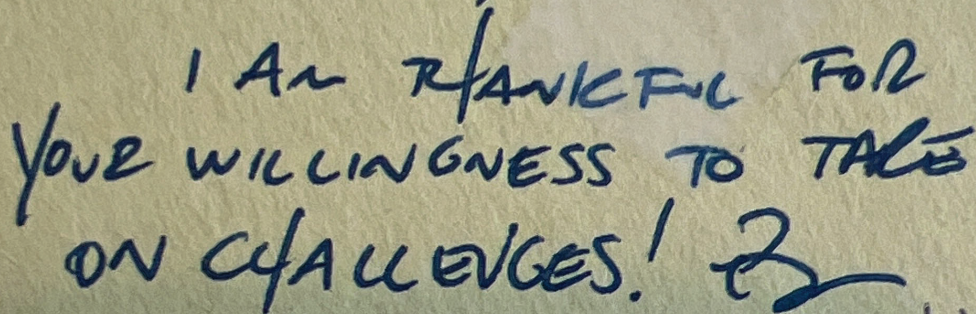 I AM THANKFUL FOR
YOUR WILLINGNESS TO TAKE
ON CHALLENGES!